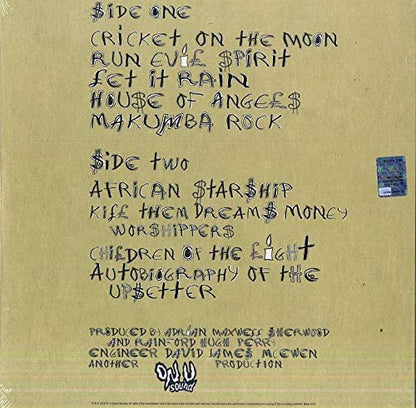 $iDE ONE
CRiCKET ON tHE MOON
RUN EViL $PiRit
£Et it RAiN
HOU$E OF ANGEL$
MAKUMBA ROCK
$iDE tWO
AFRiCAN $tAR$HiP
Ki££ tHEM DREAM$ MONEY
WOR$HiPPER$
CHiLDREN OF tHE £iGHt
AUtOBiOGRAPHY OF tHE
UP$EttER
PRODUCED BY ADRiAN MAXWELL SHERWOOD
AND RAiN-FORD HUGH PERRY
ENGiNEER DAViD JAME$ McEWEN
ANOtHER ON.U Sound PRODUCtiON